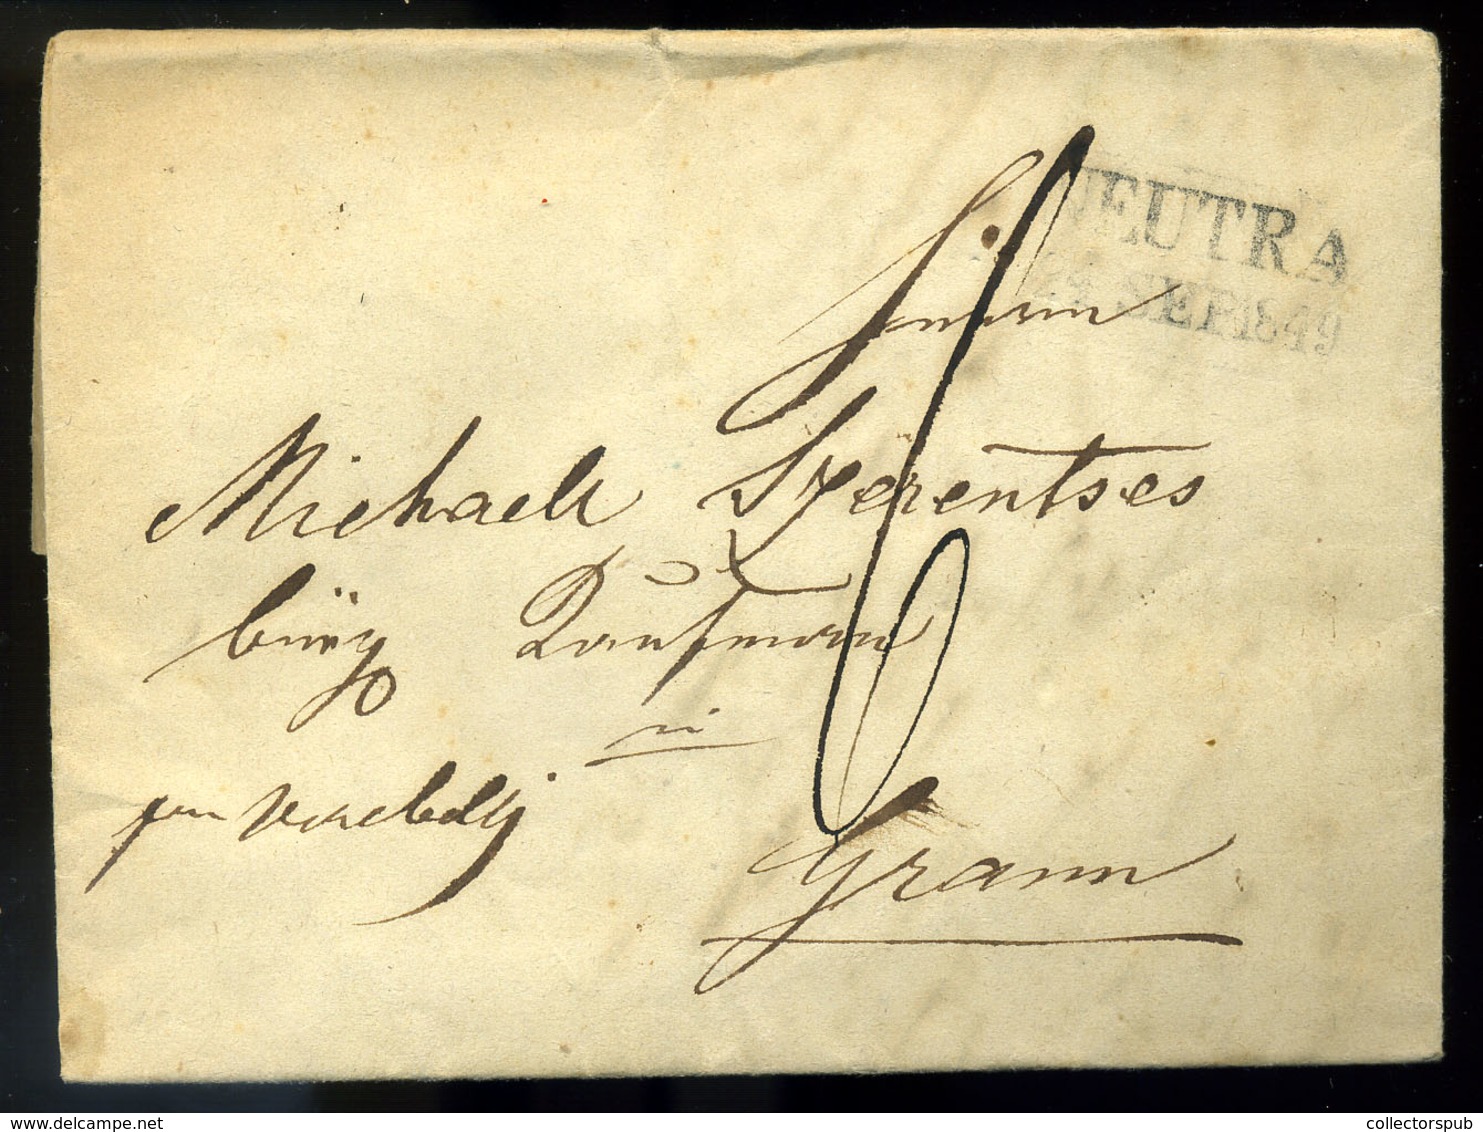 NEUTRA
24 SEP.1849
Herrn
Michaeli Szerentses
bürg Kaufmann
in
per Vereböly
Grann
6
delcampe.net
collectorspub